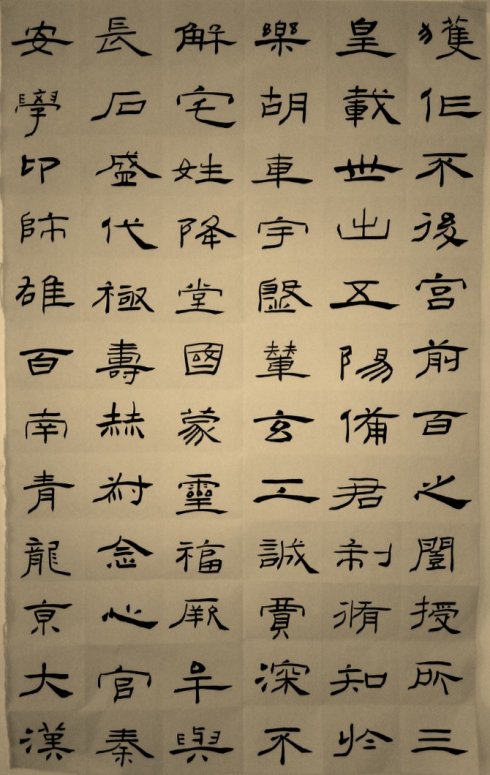 獲作不後宮前百之闓授所三
皇載世出五陽備君制脩知於
樂胡車宇盤輦玄工誠賈深不
解宅姓降堂國蒙靈福厥與
長石盛代極壽赫對念心官秦
安學印師雄百南青龍京大漢